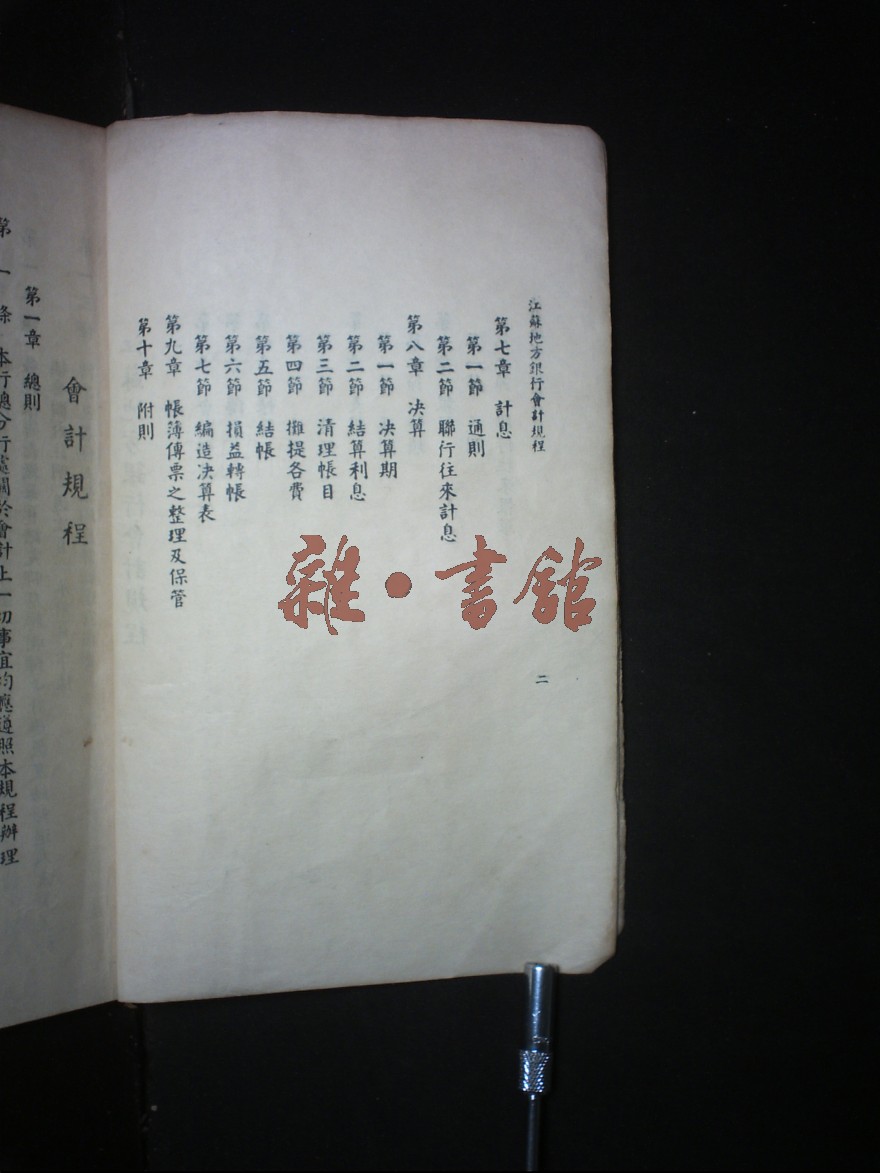 江蘇地方銀行會計規程
第七章　計息
第一節　通則
第二節　聯行往來計息
第八章　決算
第一節　決算期
第二節　結算利息
第三節　清理帳目
第四節　攤提各費
第五節　結帳
第六節　損益轉帳
第七節　編造決算表
第九章　帳簿傳票之整理及保管
第十章　附則
二
會計規程
第一章　總則
第一條　本行總分行處關於會計上一切事宜均應遵照本規程辦理
雜・書館